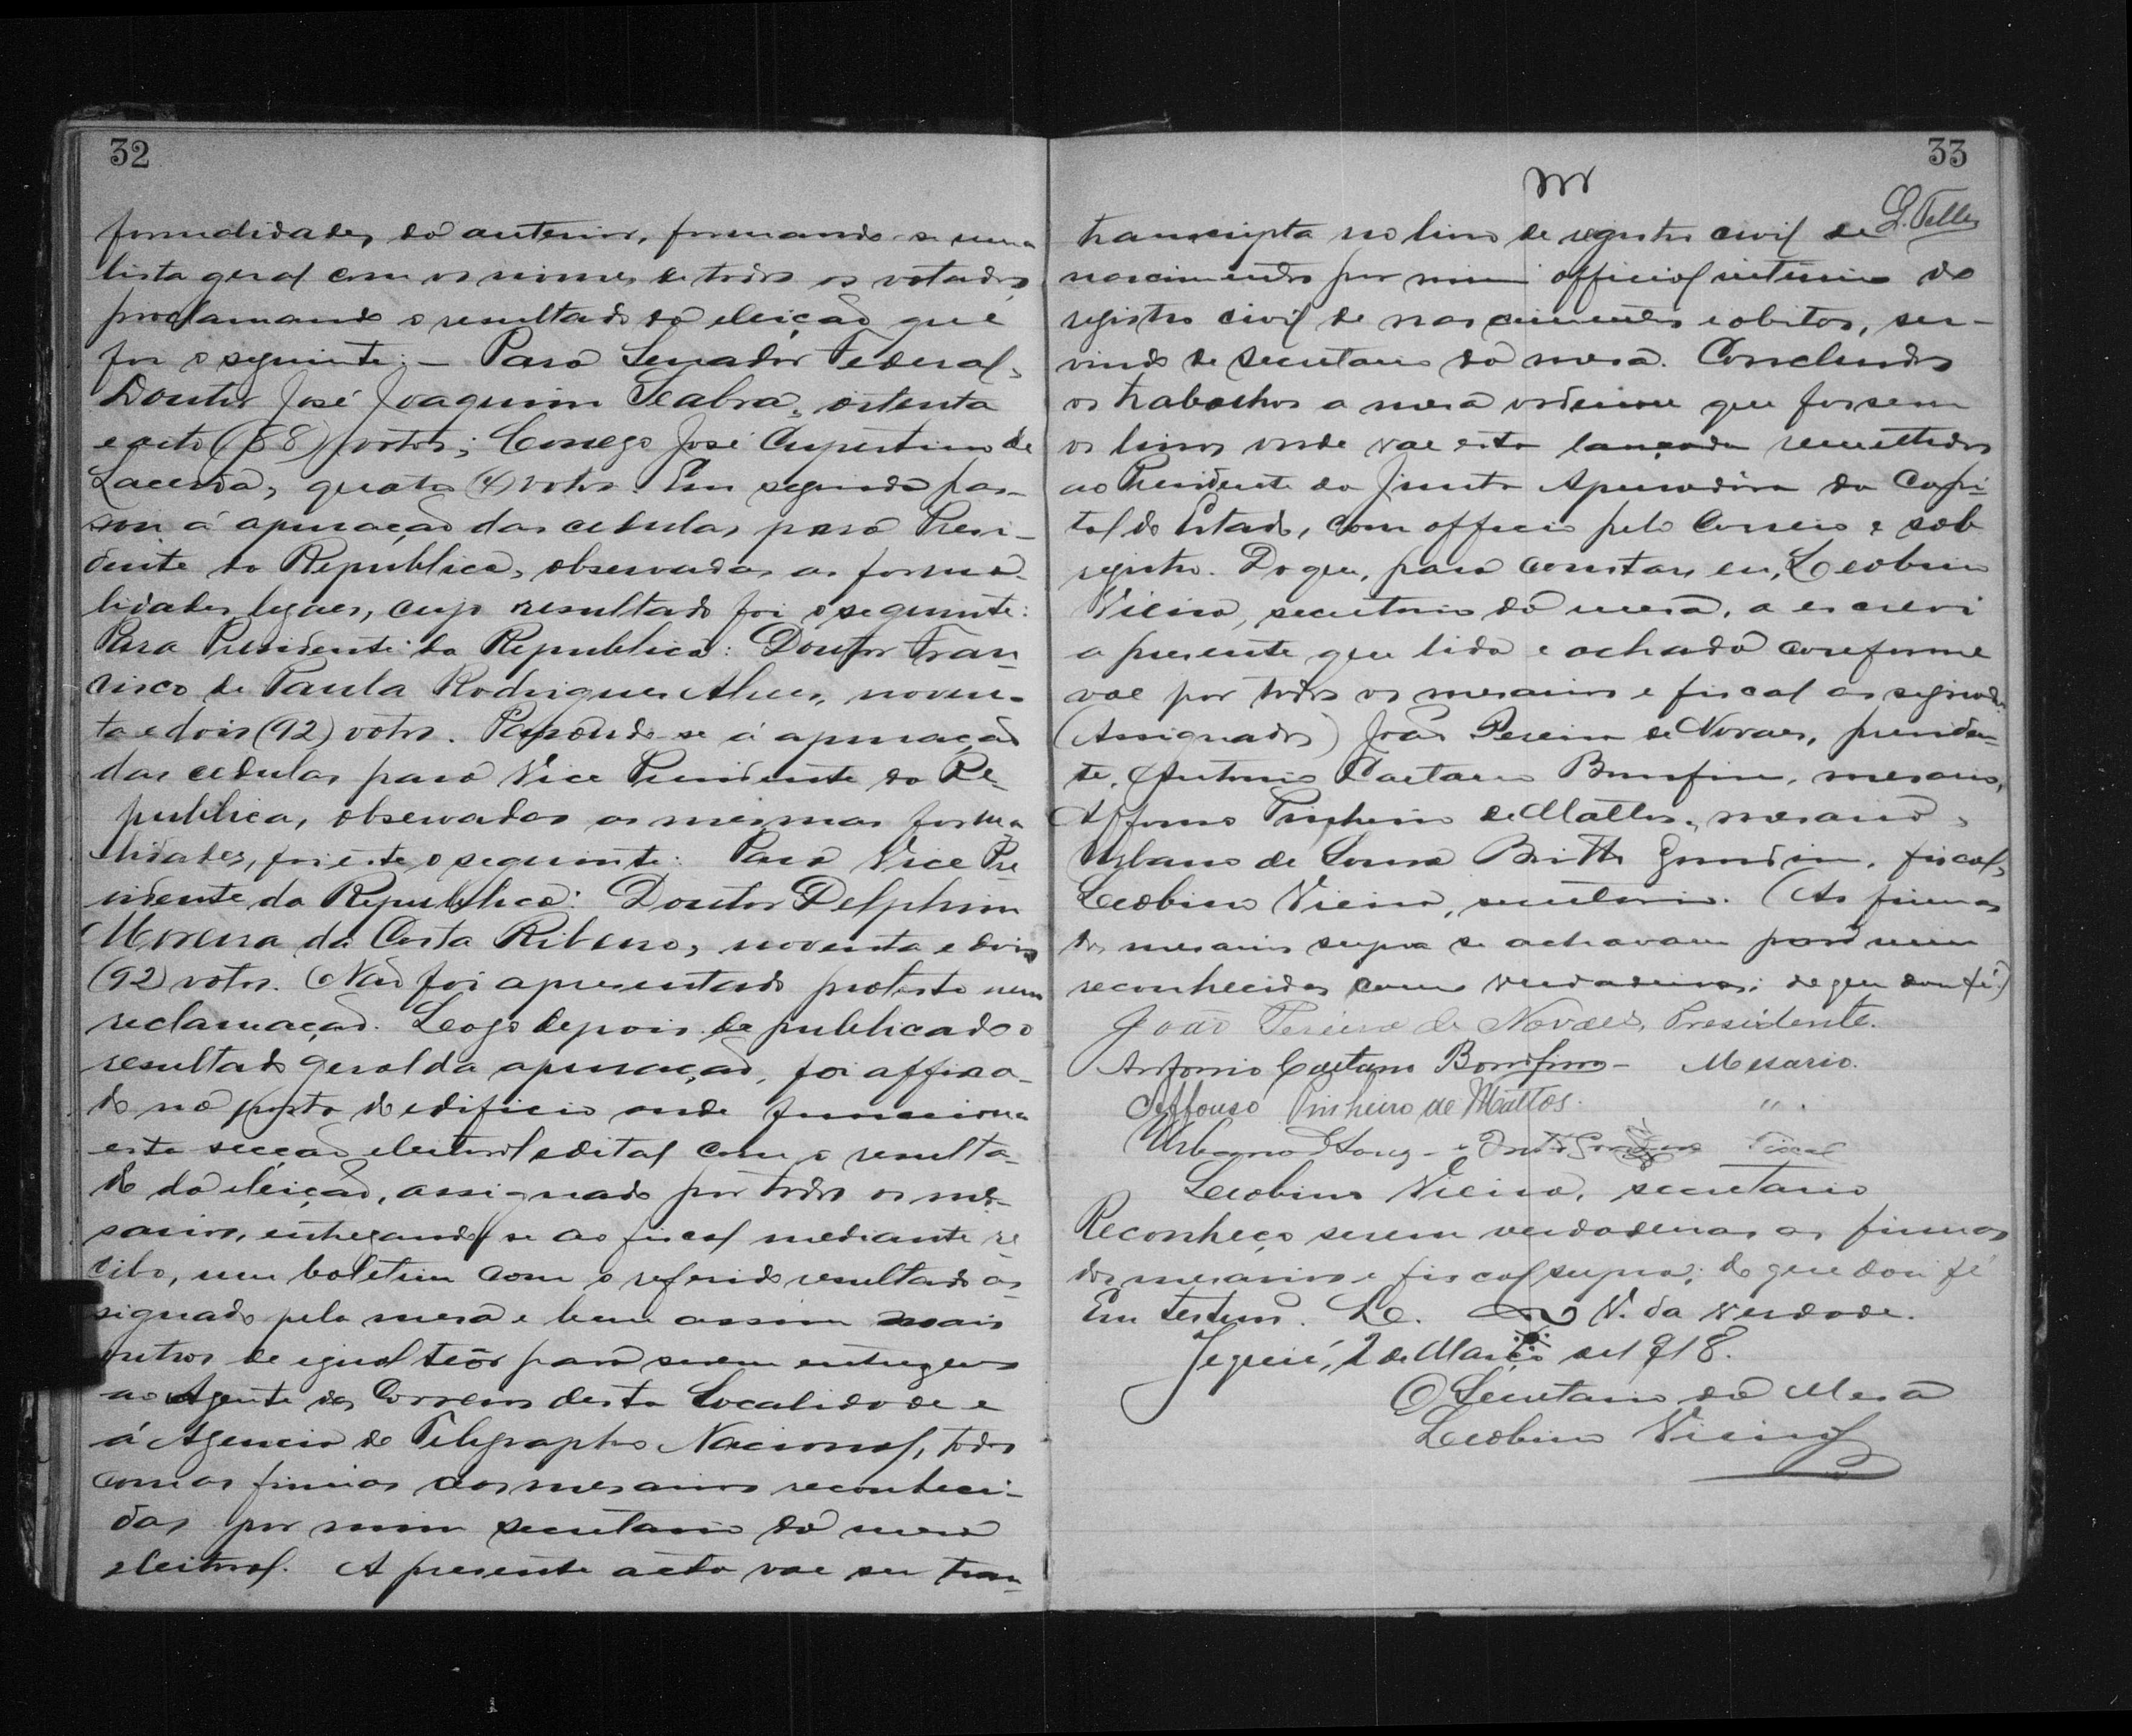 32
formalidades da anterior, formando-se uma
lista geral com os nomes de todos os votados,
proclamando o resultado da eleição que
foi o seguinte: — Para Senador Federal,
Doutor José Joaquim Seabra, oitenta
e oito (88) votos; Conego José Cupertino de
Lacerda, quatro (4) votos. Em seguida pas-
sou á apuração das cedulas para Presi-
dente da Republica, observadas as forma-
lidades legaes, cujo resultado foi o seguinte:
Para Presidente da Republica: Doutor Fran-
cisco de Paula Rodrigues Alves, noven-
ta e dois (92) votos. Passando-se á apuração
das cedulas para Vice Presidente da Re-
publica, observadas as mesmas forma-
lidades, foi este o seguinte: Para Vice Pre-
sidente da Republica: Doutor Delphim
Moreira da Costa Ribeiro, noventa e dois
(92) votos. Não foi apresentado protesto nem
reclamação. Logo depois de publicado o
resultado geral da apuração, foi affixa-
do na porta do edificio onde funcciona
esta secção eleitoral edital com o resulta-
do da eleição, assignado por todos os me-
sarios, entregando-se ao fiscal mediante re-
cibo, um boletim com o referido resultado as-
signado pela mesa e bem assim mais
outros de egual teôr para serem entregues
ao Agente dos Correios desta Localidade e
á Agencia do Telegrapho Nacional, todos
com as firmas dos mesarios reconheci-
das por mim secretario da mesa
eleitoral. A presente acta vae ser tran-
33
L. Telles
transcripta no livro de registro civil de
nascimentos por mim official interino do
registro civil de nascimentos e obitos, ser-
vindo de secretario da mesa. Concluidos
os trabalhos a mesa ordenou que fossem
os livros onde vae esta lançada remettidos
ao Presidente da Junta Apuradora da Capi-
tal do Estado, com officio pelo Correio e sob
registro. Do que, para constar, eu, Leobino
Vieira, secretario da mesa, a escrevi
a presente que lida e achada conforme
vae por todos os mesarios e fiscal assignada.
(Assignados) João Pereira de Novaes, presiden-
te, Antonio Caetano Bomfim, mesario,
Affonso Pinheiro de Mattos, mesario,
Urbano de Souza Britto Gondim, fiscal,
Leobino Vieira, secretario. (As firmas
dos mesarios supra se achavam por mim
reconhecidas como verdadeiras; do que dou fé.)
João Pereira de Novaes, Presidente.
Antonio Caetano Bomfim — Mesario.
Affonso Pinheiro de Mattos. " .
Urbano de Souza Britto Gondim Fiscal
Leobino Vieira, secretario
Reconheço serem verdadeiras as firmas
dos mesarios e fiscal supra; do que dou fé
Em testemo. L. V. da verdade.
Jequié, 2 de Março de 1918.
O Secretario da Mesa
Leobino Vieira